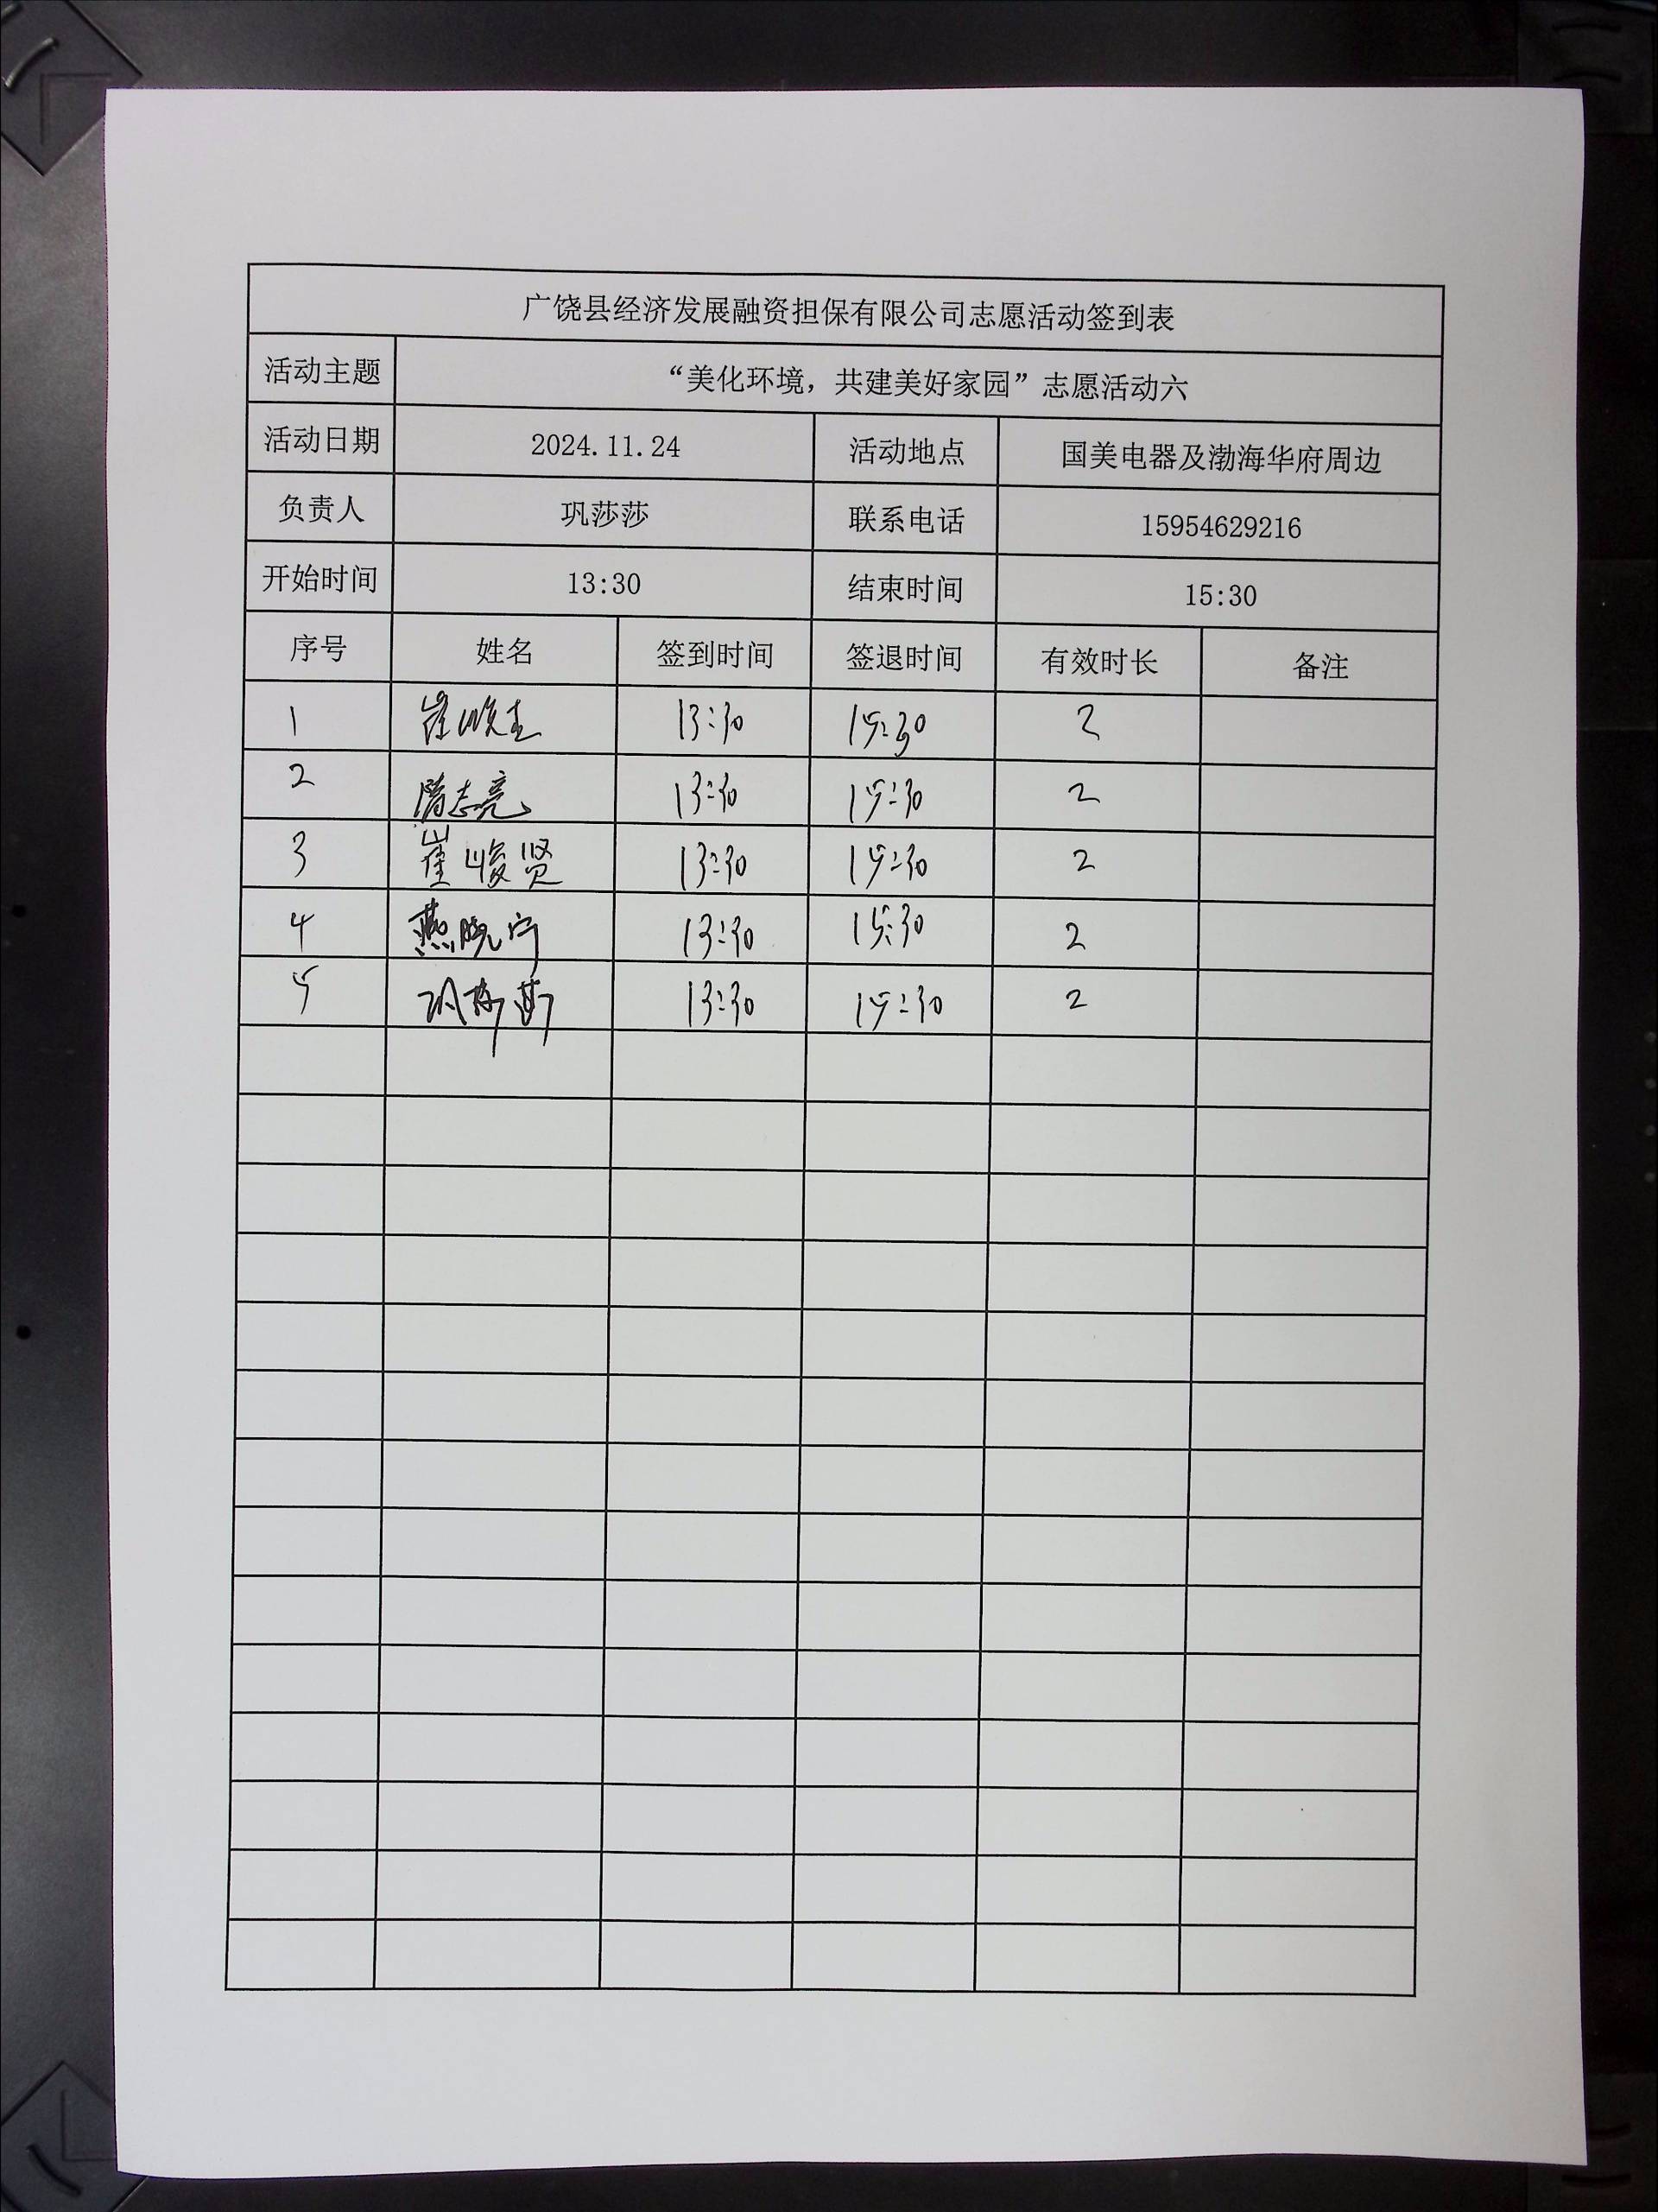 广饶县经济发展融资担保有限公司志愿活动签到表
活动主题 “美化环境，共建美好家园”志愿活动六
活动日期 2024.11.24 活动地点 国美电器及渤海华府周边
负责人 巩莎莎 联系电话 15954629216
开始时间 13:30 结束时间 15:30
序号 姓名 签到时间 签退时间 有效时长 备注
1 13:30 15:30 2
2 隋志亮 13:30 15:30 2
3 崔峻贤 13:30 15:30 2
4 燕晓宁 13:30 15:30 2
5 巩莎莎 13:30 15:30 2